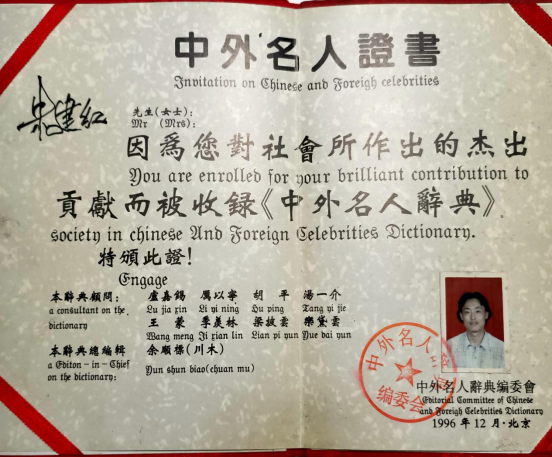 中外名人證書
Invitation on Chinese and Foreigh celebrities
朱建红
先生(女士):
Mr (Mrs):
因爲您對社會所作出的杰出
You are enrolled for your brilliant contribution to
貢獻而被收録《中外名人辭典》
society in chinese And Foreign Celebrities Dictionary.
特頒此證!
Engage
本辭典顧問: 盧嘉錫 厲以寧 胡平 湯一介
a consultant on the Lu jia xin Li yi ning Hu ping Tang yi jie
dictionary 王蒙 季羨林 梁披雲 樂黛雲
Wang meng Ji xian lin Lian pi yun Yue dai yun
本辭典總編輯 余順標(川木)
a Editon - in - Chief
on the dictionary: Yun shun biao(chuan mu)
中外名人
編委会
中外名人辭典編委會
Editorial Committee of Chinese
and Foreigh Celebrities Dictionary
1996 年 12 月·北京